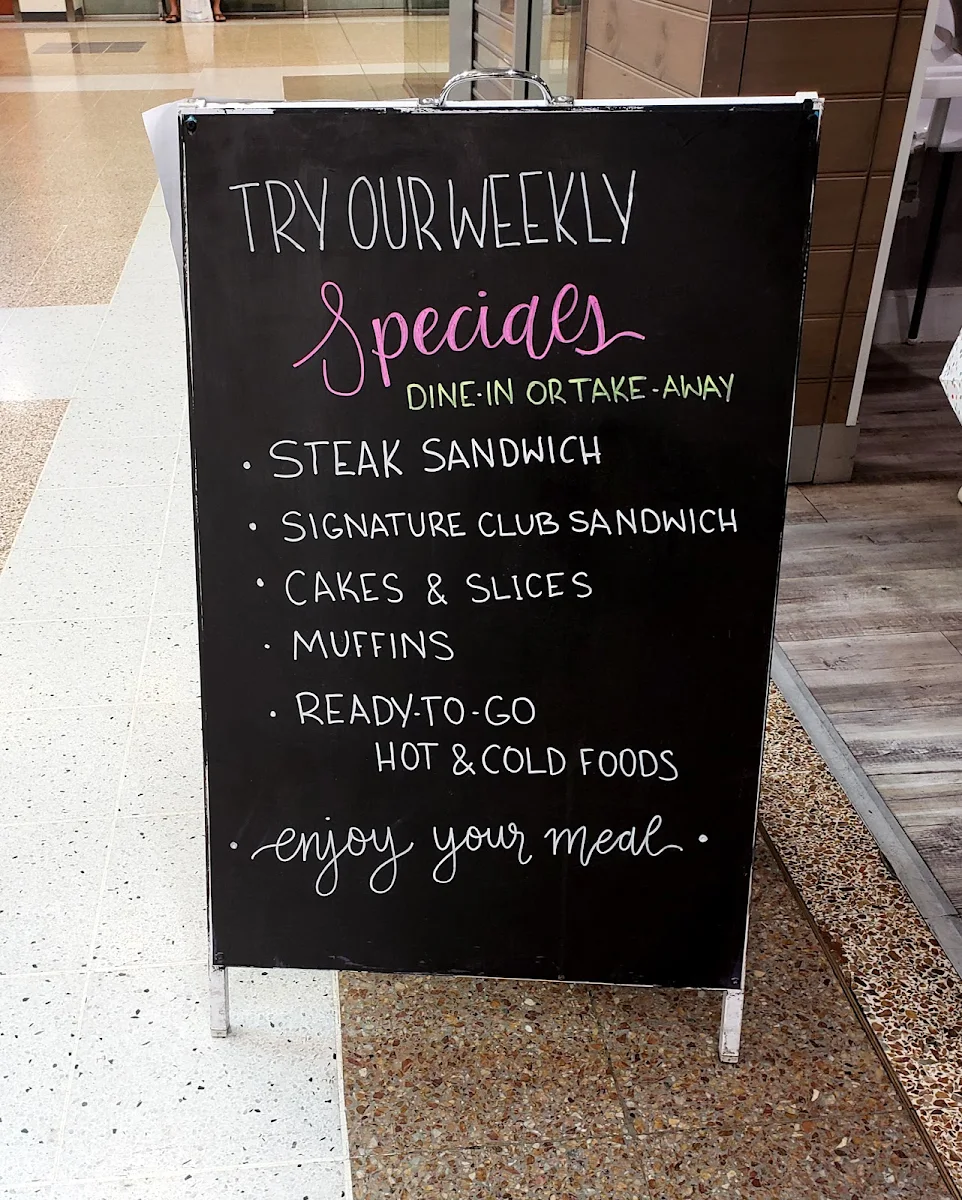 TRY OUR WEEKLY
Specials
DINE-IN OR TAKE-AWAY
· STEAK SANDWICH
· SIGNATURE CLUB SANDWICH
· CAKES & SLICES
· MUFFINS
· READY-TO-GO
HOT & COLD FOODS
· enjoy your meal ·